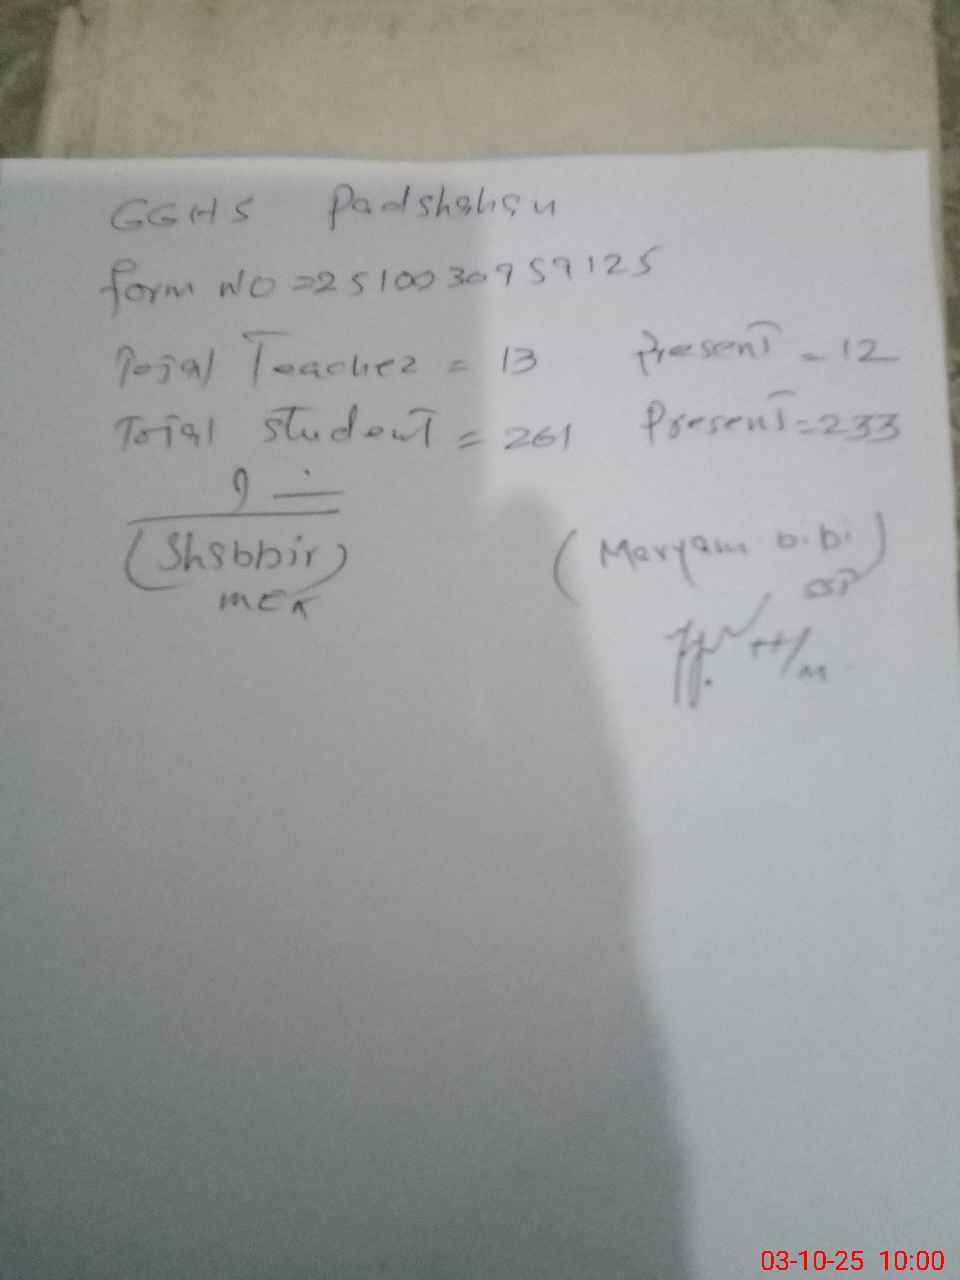 GGHS Padshahan
form NO = 2510030959125
Total Teacher = 13 Present = 12
Total Student = 261 Present = 233
(Shabbir)
MEA
(Maryam bibi)
SST
H/M
03-10-25 10:00